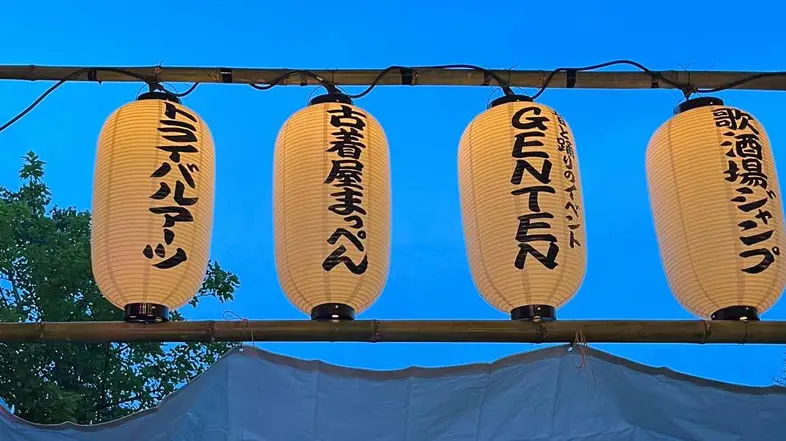 トライバルアーツ
古着屋まっぺん
踊りのイベント
GENTEN
歌酒場ジャンプ